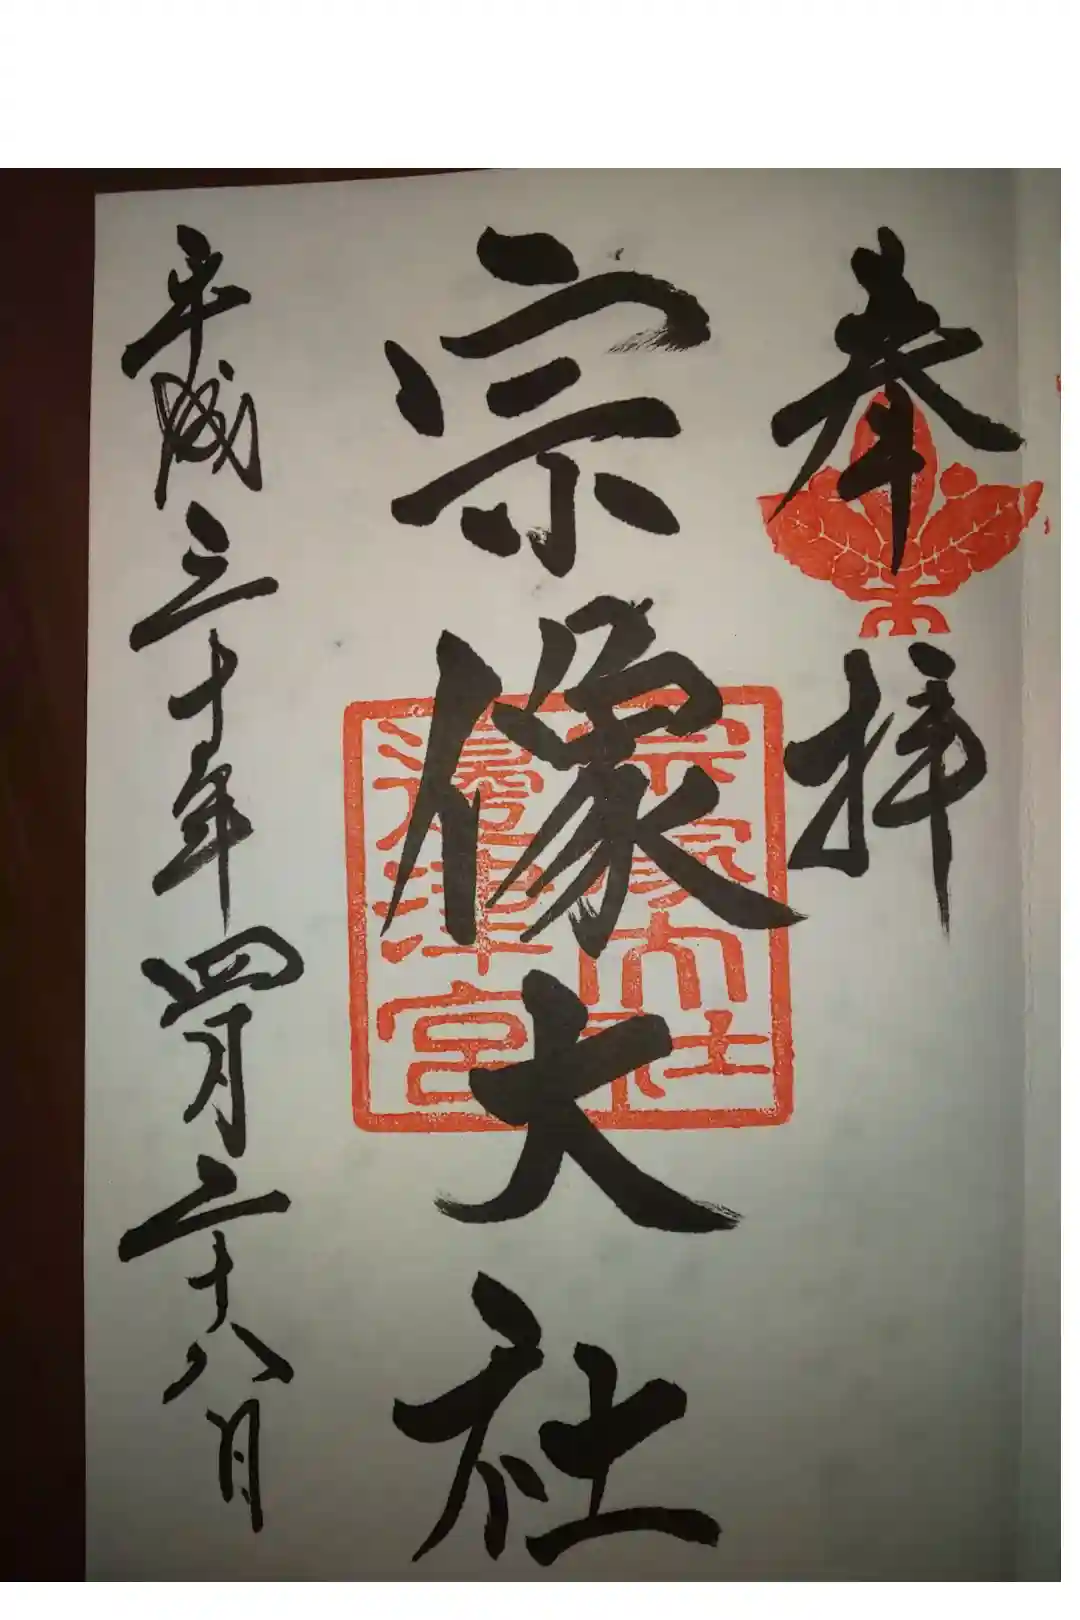 奉拝
宗像大社
宗像大社
邊津宮
平成三十年四月二十八日